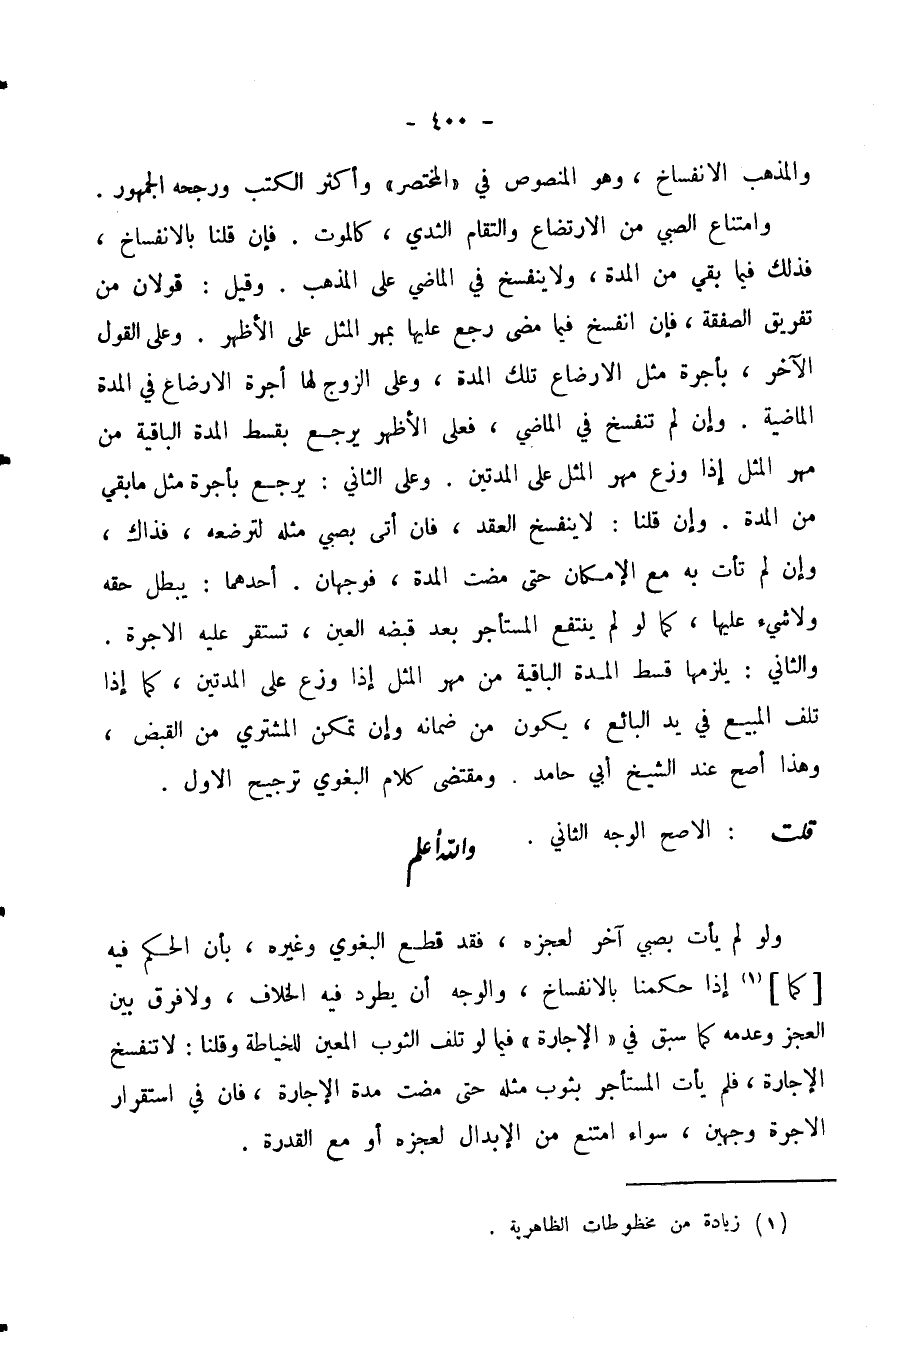 - ٤٠٠ -
والمذهب الانفساخ ، وهو المنصوص في «المختصر» وأكثر الكتب ورجحه الجمهور .
وامتناع الصبي من الارتضاع والتقام الثدي ، كالموت . فإن قلنا بالانفساخ ،
فذلك فيما بقي من المدة ، ولاينفسخ في الماضي على المذهب . وقيل : قولان من
تفريق الصفقة ، فإن انفسخ فيما مضى رجع عليها بمهر المثل على الأظهر . وعلى القول
الآخر ، بأجرة مثل الارضاع تلك المدة ، وعلى الزوج لها أجرة الارضاع في المدة
الماضية . وإن لم تنفسخ في الماضي ، فعلى الأظهر يرجع بقسط المدة الباقية من
مهر المثل إذا وزع مهر المثل على المدتين . وعلى الثاني : يرجع بأجرة مثل مابقي
من المدة . وإن قلنا : لاينفسخ العقد ، فان أتى بصبي مثله لترضعه ، فذاك ،
وإن لم تأت به مع الإمكان حتى مضت المدة ، فوجهان . أحدهما : يبطل حقه
ولاشيء عليها ، كما لو لم ينتفع المستأجر بعد قبضه العين ، تستقر عليه الاجرة .
والثاني : يلزمها قسط المدة الباقية من مهر المثل إذا وزع على المدتين ، كما إذا
تلف المبيع في يد البائع ، يكون من ضمانه وإن تمكن المشتري من القبض ،
وهذا أصح عند الشيخ أبي حامد . ومقتضى كلام البغوي ترجيح الاول .
قلت : الاصح الوجه الثاني . والله أعلم
ولو لم يأت بصبي آخر لعجزه ، فقد قطع البغوي وغيره ، بأن الحكم فيه
[ كما ] (١) إذا حكمنا بالانفساخ ، والوجه أن يطرد فيه الخلاف ، ولافرق بين
العجز وعدمه كما سبق في « الإجارة » فيما لو تلف الثوب المعين للخياطة وقلنا : لاتنفسخ
الإجارة ، فلم يأت المستأجر بثوب مثله حتى مضت مدة الإجارة ، فان في استقرار
الاجرة وجهين ، سواء امتنع من الإبدال لعجزه أو مع القدرة .
(١) زيادة من مخطوطات الظاهرية .